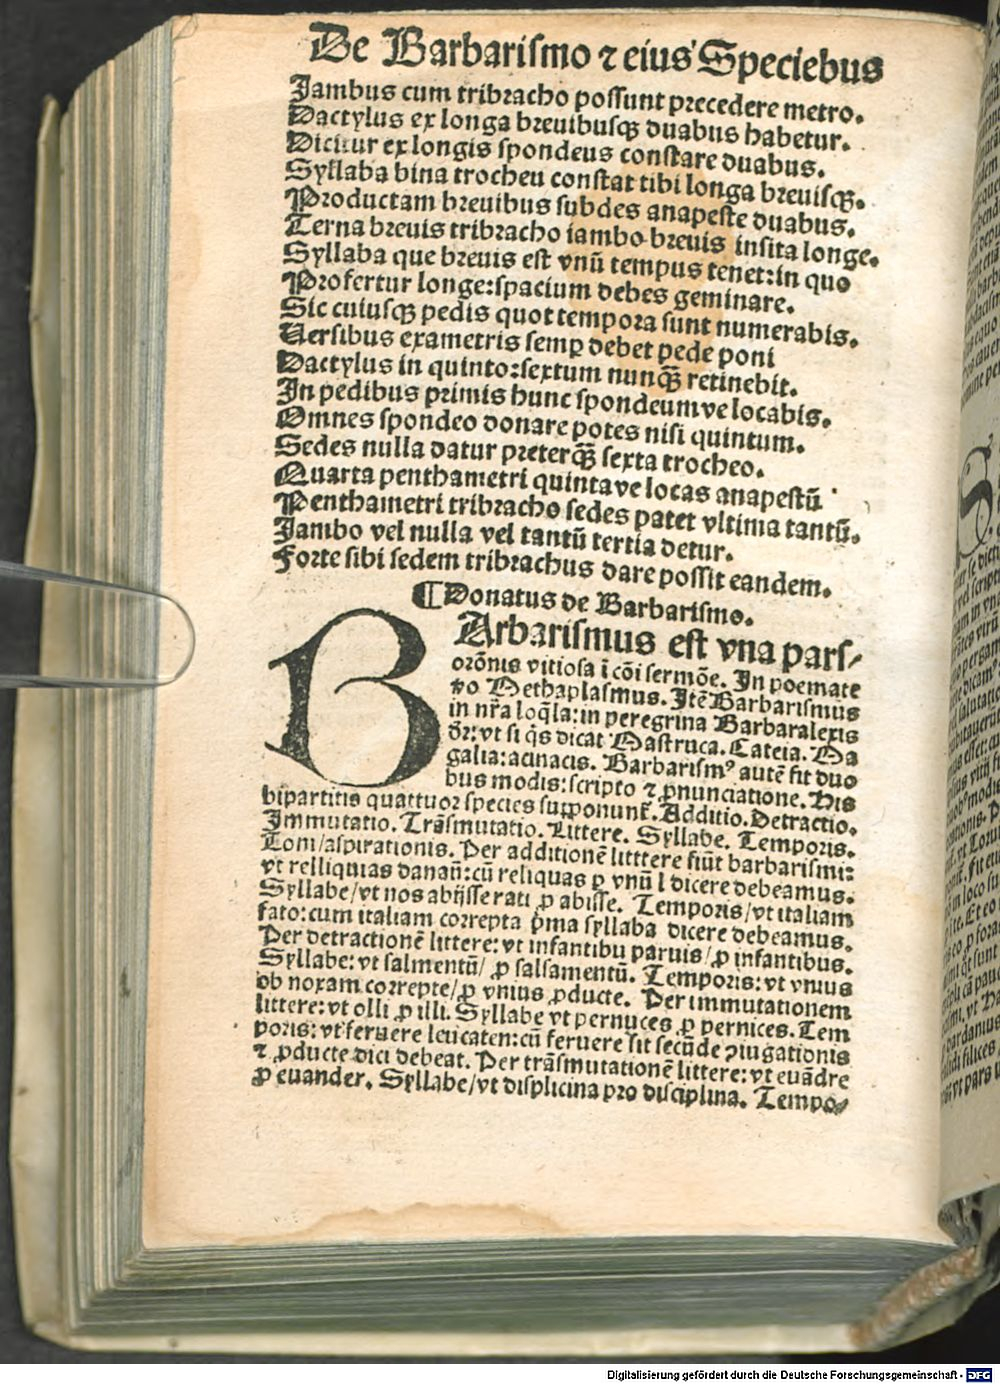 De Barbarismo ⁊ eius Speciebus
Jambus cum tribracho possunt precedere metro.
Dactylus ex longa breuibusq̃ duabus habetur.
Dicitur ex longis spondeus constare duabus.
Syllaba bina trocheu constat tibi longa breuisq̃.
Productam breuibus subdes anapeste duabus.
Terna breuis tribracho iambo breuis insita longe.
Syllaba que breuis est vnũ tempus tenet: in quo
Profertur longe: spacium debes geminare.
Sic cuiusq̃ pedis quot tempora sunt numerabis.
Uersibus exametris semꝑ debet pede poni
Dactylus in quinto: sextum nunq̃ retinebit.
In pedibus primis hunc spondeumve locabis.
Omnes spondeo donare potes nisi quintum.
Sedes nulla datur preterq̃ sexta trocheo.
Quarta penthametri quintave locas anapestũ
Penthametri tribracho sedes patet vltima tantũ.
Jambo vel nulla vel tantũ tertia detur.
Forte sibi sedem tribrachus dare possit eandem.
¶ Donatus de Barbarismo.
BArbarismus est vna pars/
orõnis vitiosa ĩ cõi sermõe. In poemate
ṽo Methaplasmus. Itẽ Barbarismus
in nr̃a loq̃la: in peregrina Barbaralexis
dr̃: vt si q̃s dicat Mastruca. Cateia. Ma
galia: acinacis. Barbarismꝰ autẽ fit duo
bus modis: scripto ⁊ ꝓnunciatione. His
bipartitis quattuor species supponunt̃. Additio. Detractio.
Immutatio. Trãsmutatio. Littere. Syllabe. Temporis.
Toni/ aspirationis. Per additionẽ litttere fiũt barbarismi:
vt relliquias danaũ: cũ reliquas ꝑ vnũ l dicere debeamus.
Syllabe/ vt nos abijsse rati ꝓ abisse. Temporis/ vt italiam
fato: cum italiam correpta p̃ma syllaba dicere debeamus.
Per detractionẽ littere: vt infantibu paruis/ ꝓ infantibus.
Syllabe: vt salmentũ/ ꝓ salsamentũ. Temporis: vt vnius
ob noxam correpte/ ꝓ vnius ꝓducte. Per immutationem
littere: vt olli ꝓ illi. Syllabe vt pernuces ꝓ pernices. Tem
poris: vt feruere leucaten: cũ feruere sit secũde ꝯiugationis
⁊ ꝓducte dici debeat. Per trãsmutationẽ littere: vt euãdre
ꝓ euander. Syllabe/ vt displicina pro disciplina. Tempo/
Digitalisierung gefördert durch die Deutsche Forschungsgemeinschaft - DFG